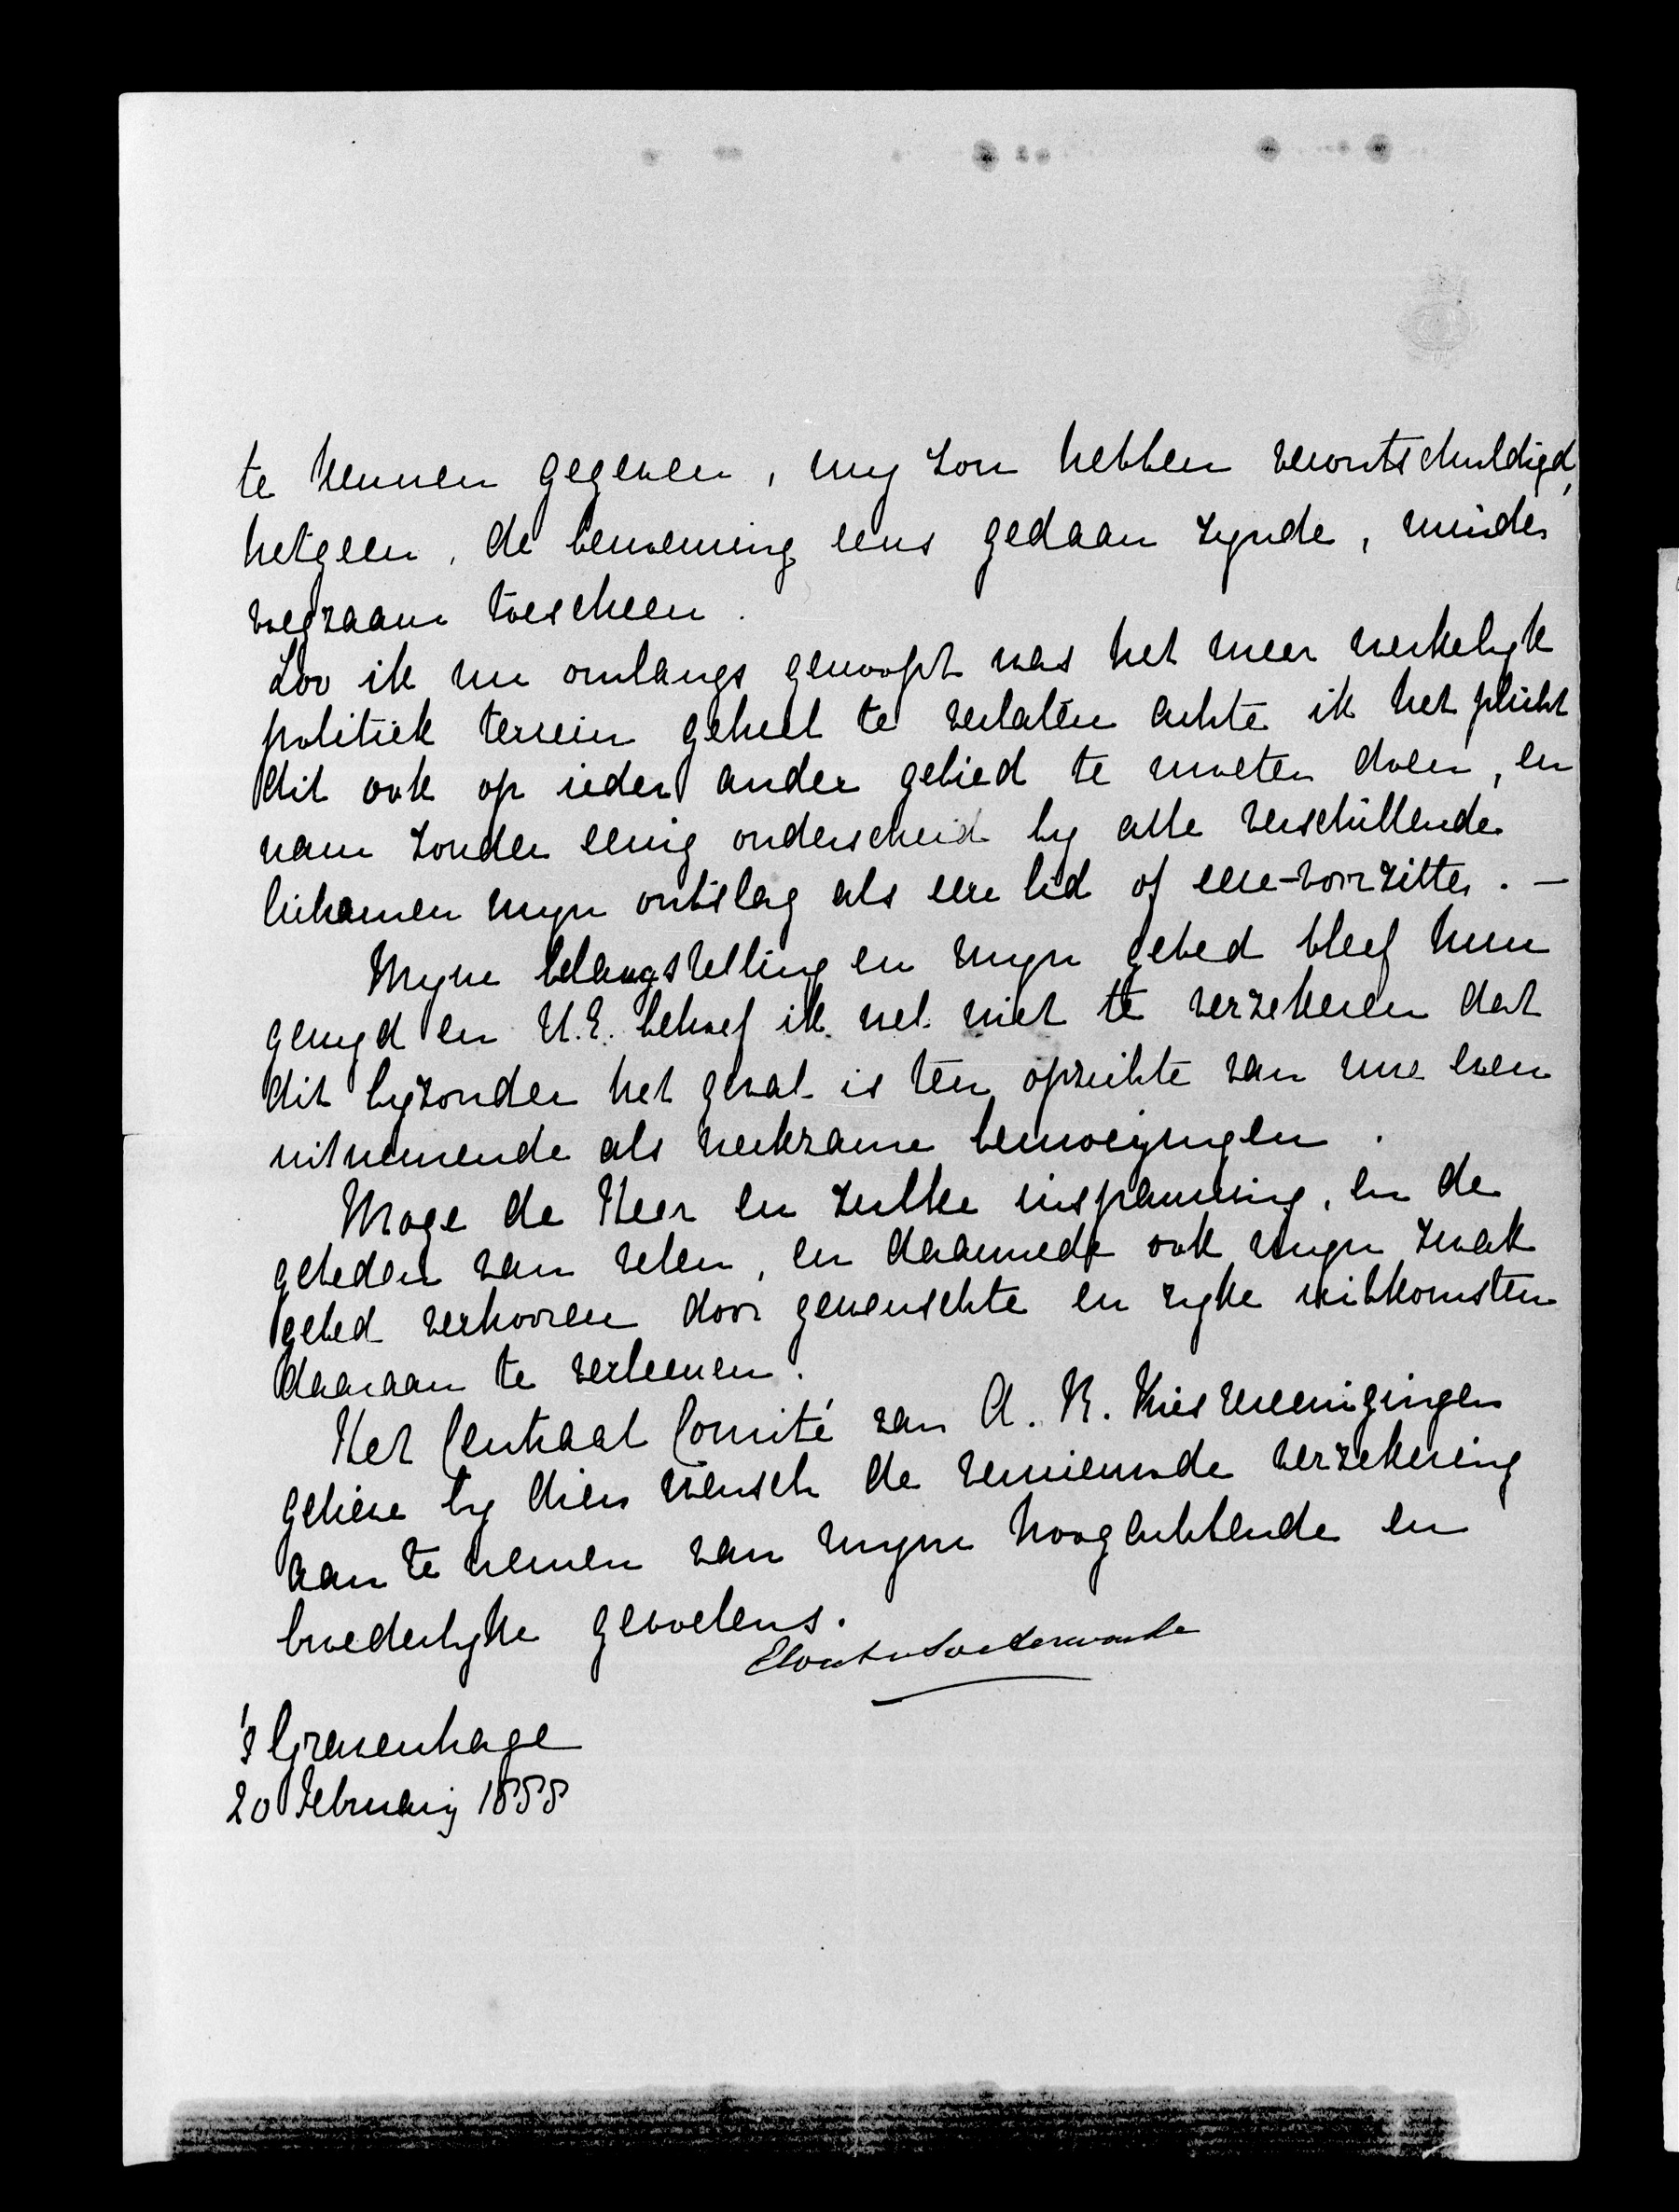 te kennen gegeven, my zou hebben verontschuldigd,
hetgeen, de benoeming eens gedaan zynde, minder
voegzaam toescheen.
Zoo ik nu onlangs genoopt was het meer werkelyk
politiek terrein geheel te verlaten achte ik het plicht
dit ook op ieder ander gebied te moeten doen, en
nam zonder eenig onderscheid by alle verschillende
lichamen myn ontslag als eere lid of eere-voorzitter. —
Myne belangstelling en myn gebed bleef hun
gewyd en U.E. behoef ik wel niet te verzekeren dat
dit byzonder het geval is ten opzichte van uwe even
uitnemende als werkzame bemoeyingen.
Moge de Heer en zulke inspanning, en de
gebeden van velen, en daarmede ook myn zwak
gebed verhooren door gewenschte en ryke uitkomsten
daaraan te verleenen.
Het Centraal Comité van A. R. Kiesvereenigingen
gelieve by dien wensch de vernieuwde verzekering
aan te nemen van myne hoogachtende en
broederlyke gevoelens.
Elout v Soeterwoude
's Gravenhage
20 February 1888